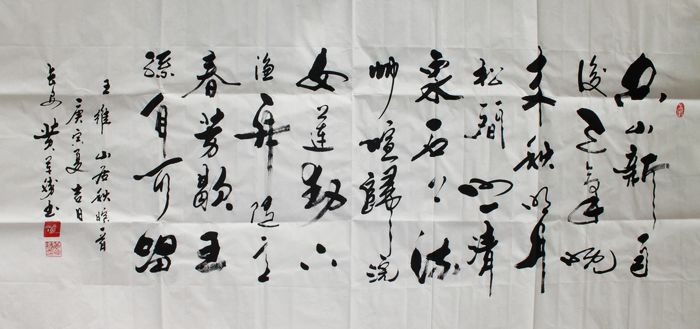 空山新雨
後天氣晚
来秋明月
松間照清
泉石上流
竹喧歸浣
女蓮動下
渔舟随意
春芳歇王
孫自可留
王維山居秋暝一首
庚寅夏吉日
長安書